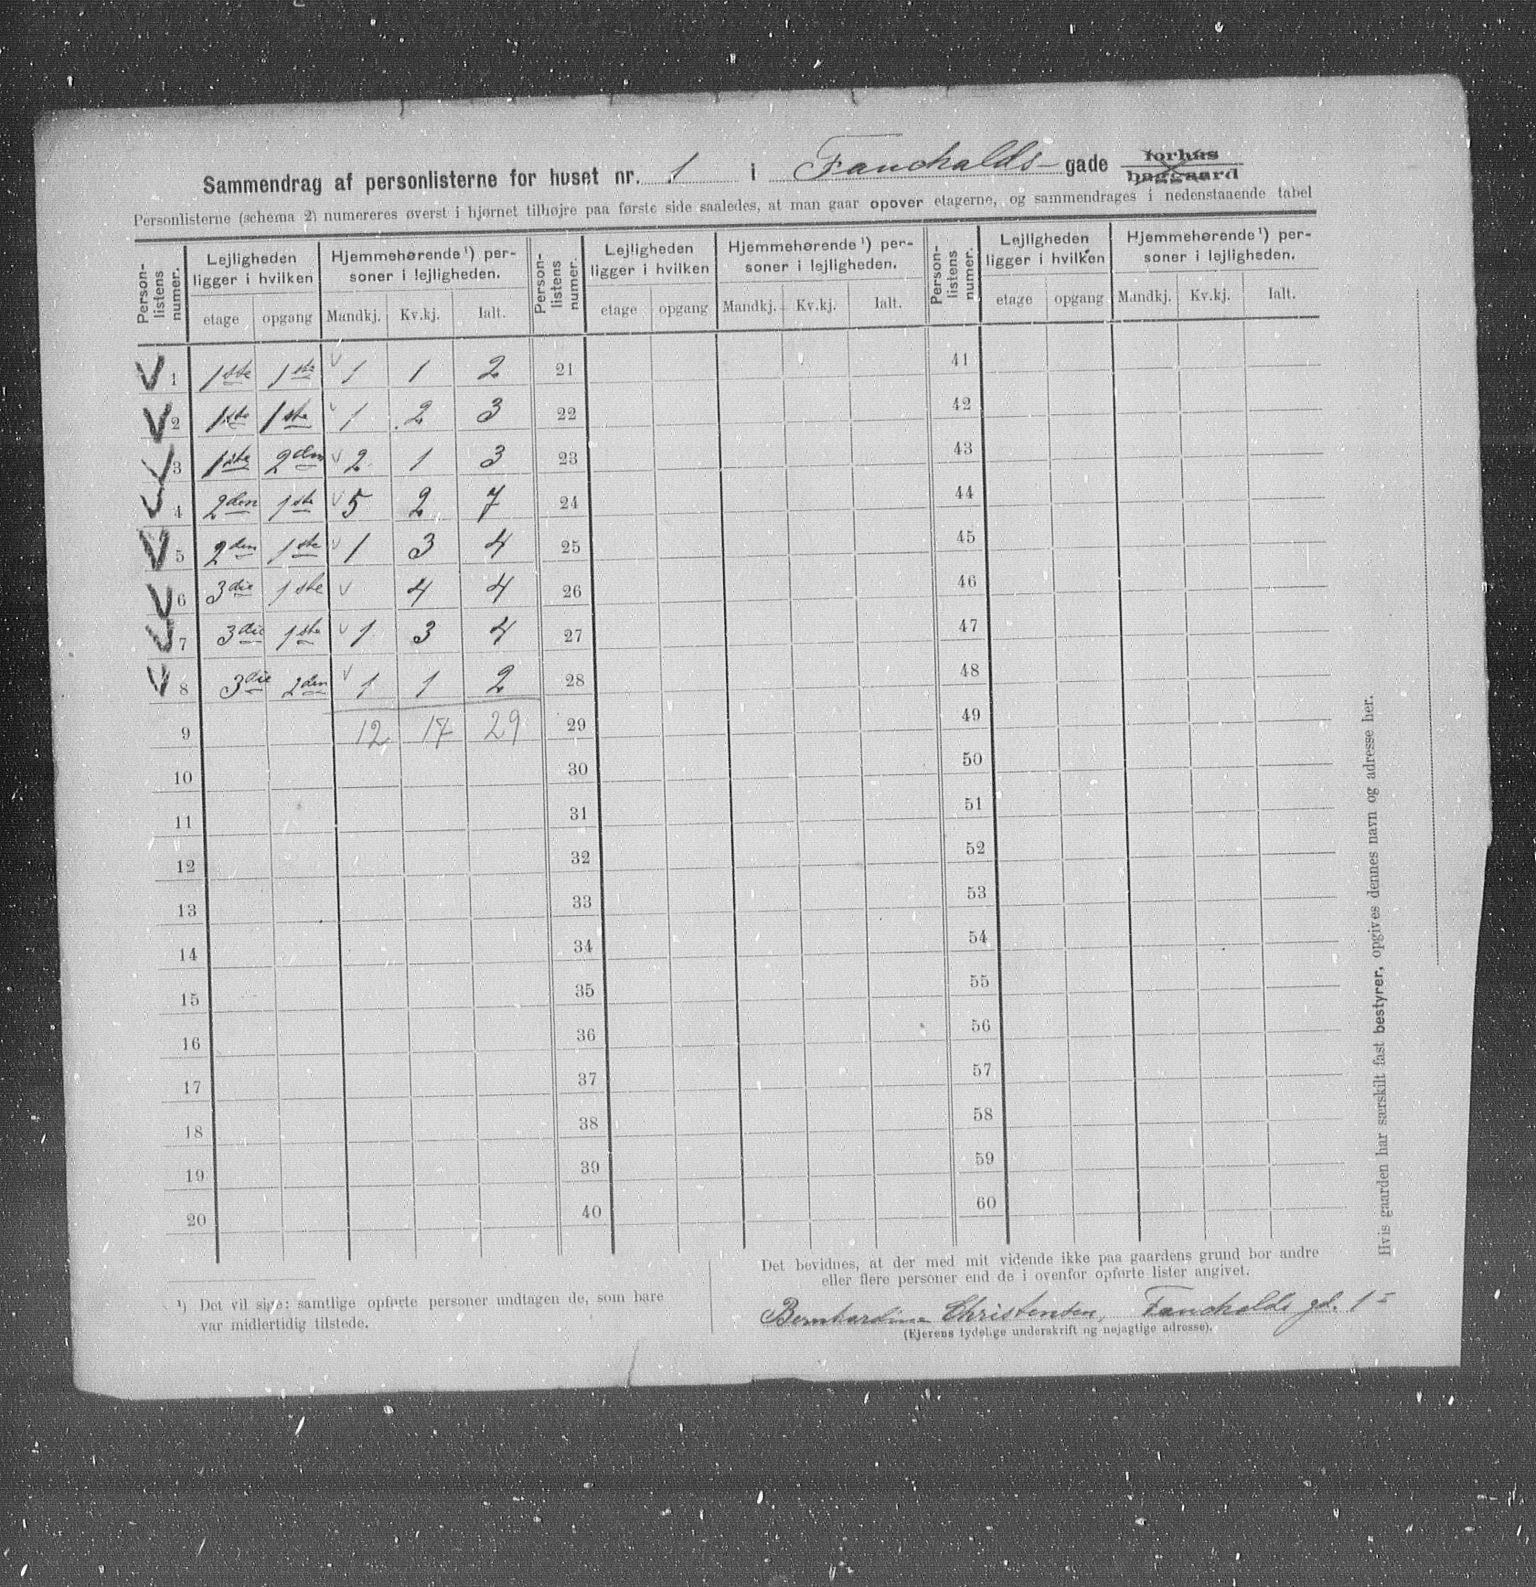 Sammendrag af personlisterne for huset nr. 1 i Fauchalds- gade forhus baggaard
Personlisterne (schema 2) numereres øverst i hjørnet tilhøjre paa første side saaledes, at man gaar opover etagerne, og sammendrages i nedenstaaende tabel
Person-listens numer. Lejligheden ligger i hvilken Hjemmehørende ¹) personer i lejligheden. Person-listens numer. Lejligheden ligger i hvilken Hjemmehørende ¹) personer i lejligheden. Person-listens numer. Lejligheden ligger i hvilken Hjemmehørende ¹) personer i lejligheden.
etage opgang Mandkj. Kv.kj. Ialt. etage opgang Mandkj. Kv.kj. Ialt. etage opgang Mandkj. Kv.kj. Ialt.
V 1 1ste 1ste v 1 1 2 21 41
V 2 1ste 1ste v 1 2 3 22 42
V 3 1ste 2den v 2 1 3 23 43
V 4 2den 1ste v 5 2 7 24 44
V 5 2den 1ste v 1 3 4 25 45
V 6 3die 1ste v 4 4 26 46
V 7 3die 1ste v 1 3 4 27 47
V 8 3die 2den v 1 1 2 28 48
9 12 17 29 29 49
10 30 50
11 31 51
12 32 52
13 33 53
14 34 54
15 35 55
16 36 56
17 37 57
18 38 58
19 39 59
20 40 60
Hvis gaarden har særskilt fast bestyrer, opgives dennes navn og adresse her.
¹) Det vil sige: samtlige opførte personer undtagen de, som bare
var midlertidig tilstede.
Det bevidnes, at der med mit vidende ikke paa gaardens grund bor andre
eller flere personer end de i ovenfor opførte lister angivet.
Bernhardine Christensen, Fauchalds gd. 1
(Ejerens tydelige underskrift og nøjagtige adresse).